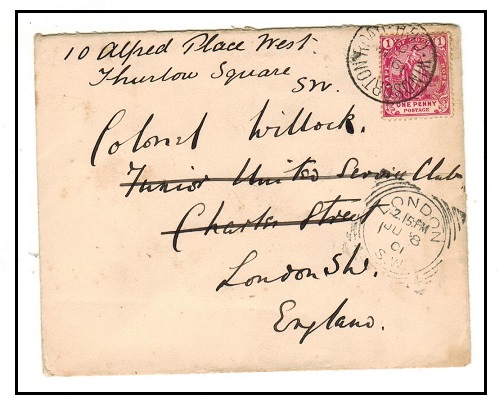 10 Alfred Place West.
Thurlow Square
SW.
Colonel Willock.
Junior United Service Club
Charles Street
London SW.
England.
ONE PENNY
POSTAGE
LONDON
2.15.PM
JU 8
01
S.W.